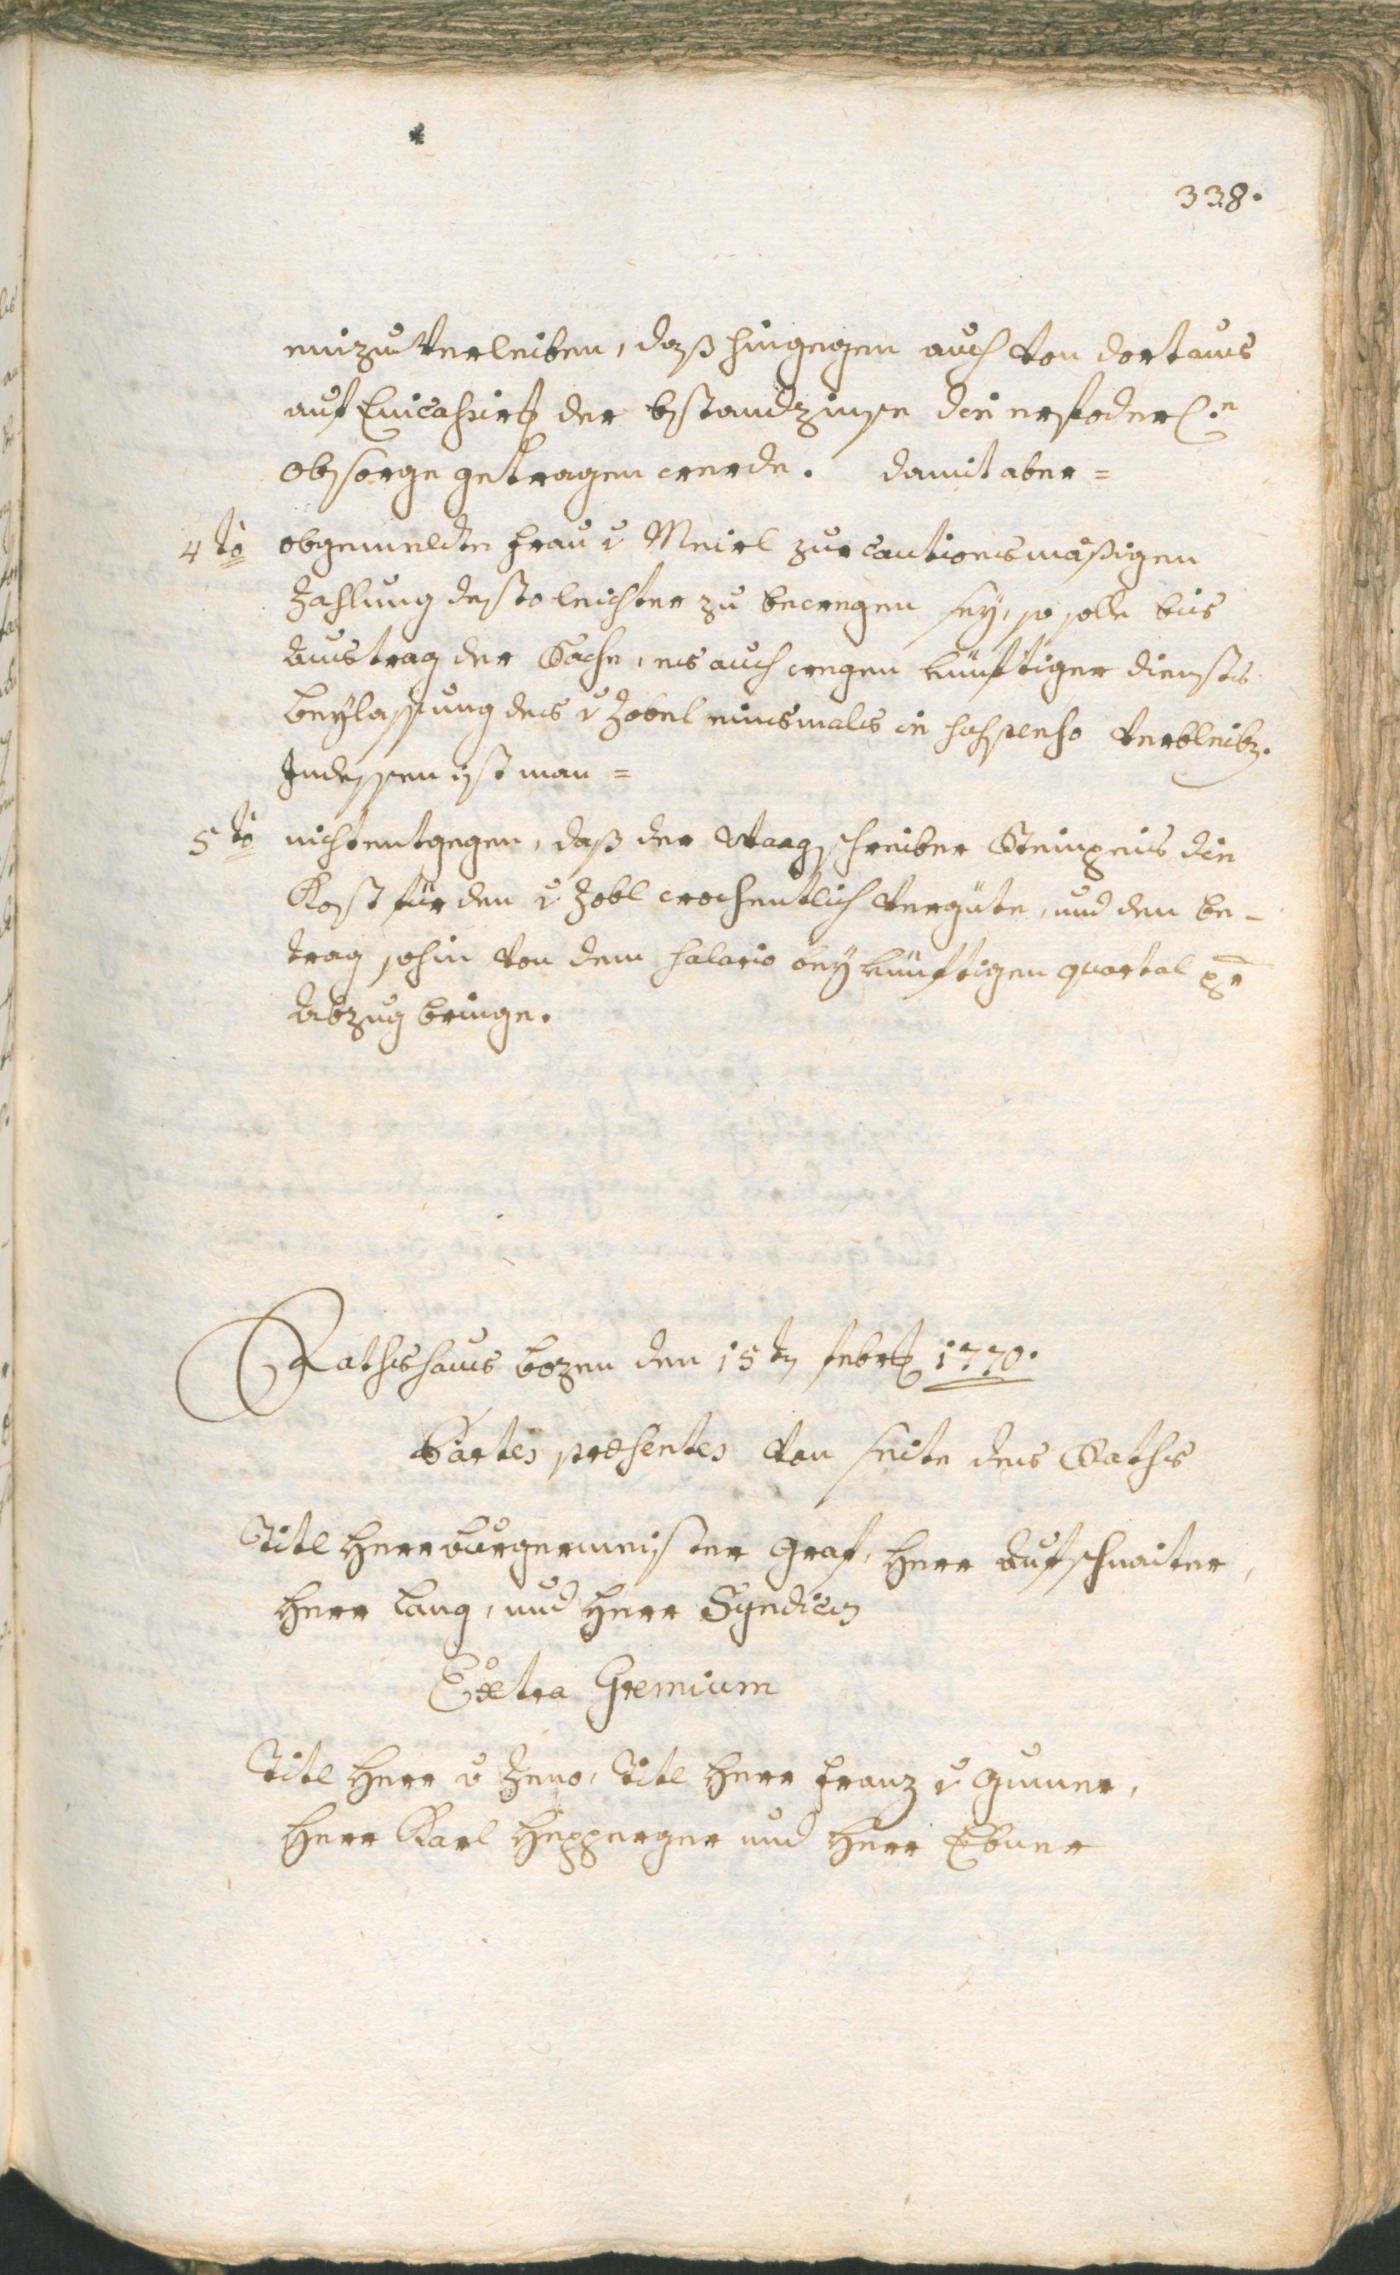 338.
einzuverleiben, daß hingegen auch von dortaus
auf Einsahirg der bstandzinse die erfoderl.e
obsorge getragen werde. damit aber =
4to obgemeldte Frau v Meirl zur cautionsmäßigen
Zahlung desto leichter zu bewegen sey, so solle bis
Austrag der Sache, es auch wegen künftiger dienst
beylassung des v Zobel einsmals in suspenso verbleibz.
Indessen ist man =
5to nicht entgegen, daß der Waagschreiber Steinpeis die
Kost für den v Zobl wochentlich vergüte, und den be-
trag sohin von dem salario bey künftigen quartal pr
Abzug bringe.
Rathshaus bozen den 15tn febrg 1770.
Partes præsentes von seite des Raths
Titl Herr burgermeister Graf, Herr Aufschnaiter,
Herr Lang, und Herr Syndicus
Extra Gremium
Titl Herr v Zeno, Titl Herr Franz v Gumer,
Herr Karl Hepperger und Herr Ebner